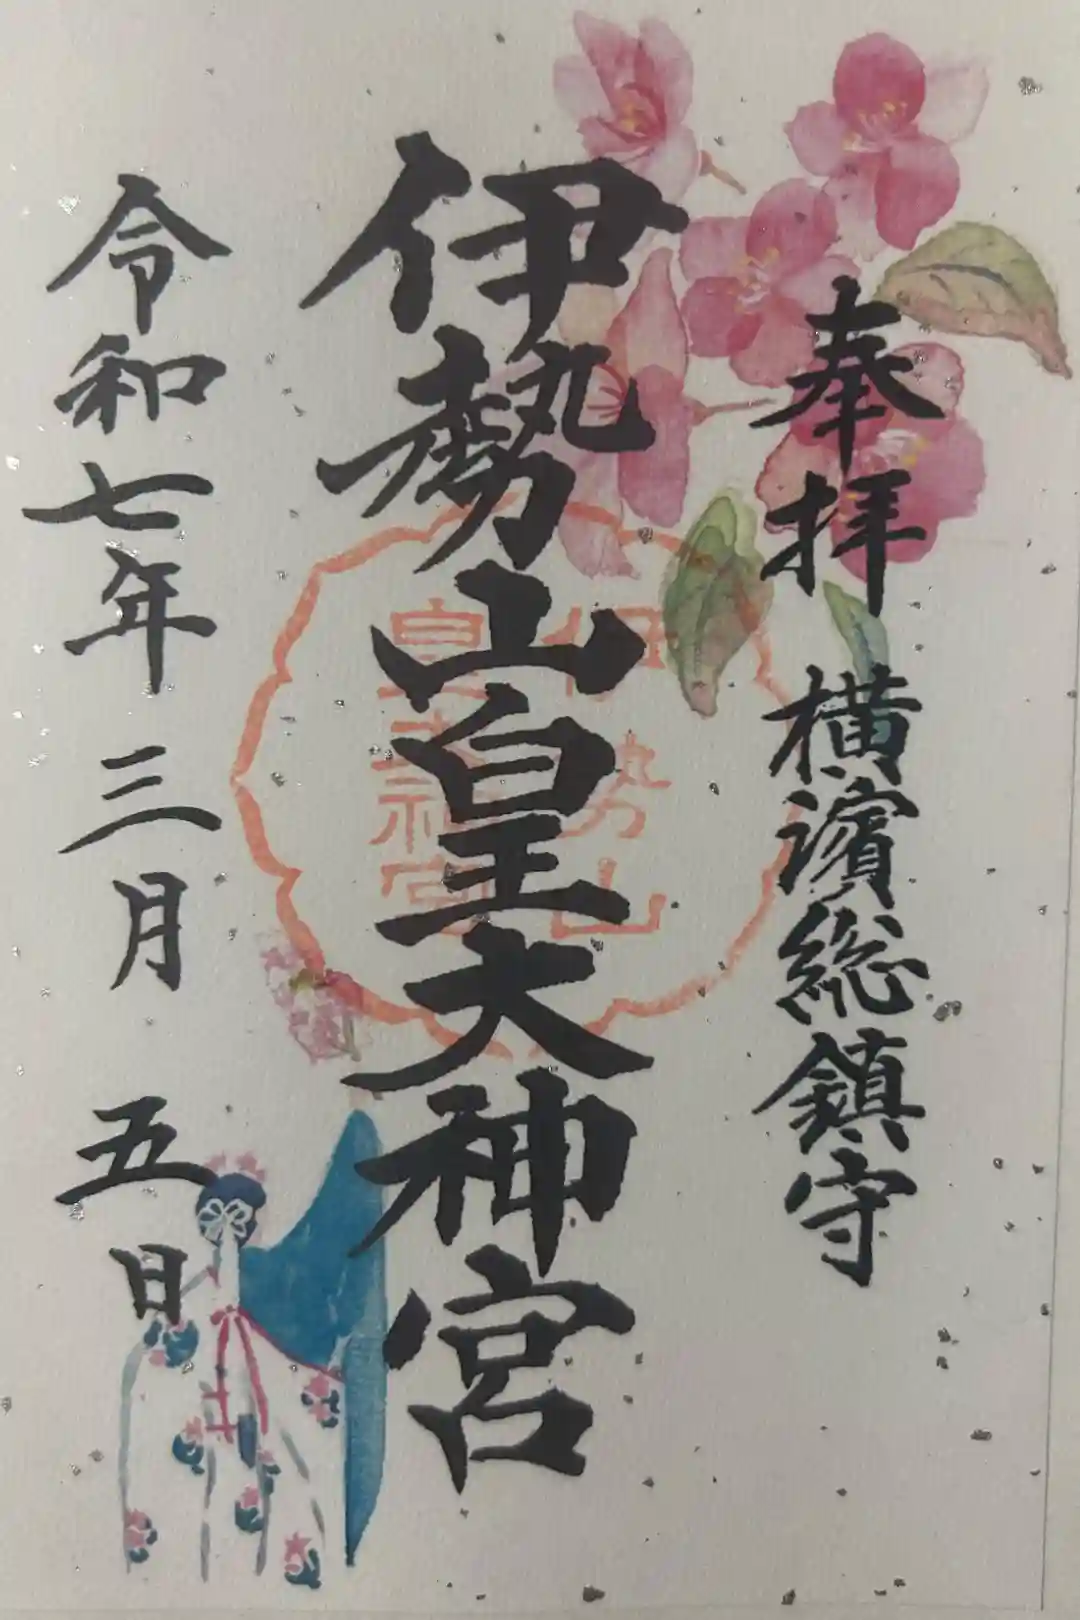 奉拝　横濱総鎮守
伊勢山皇大神宮
伊勢山
皇大神宮
令和七年三月五日